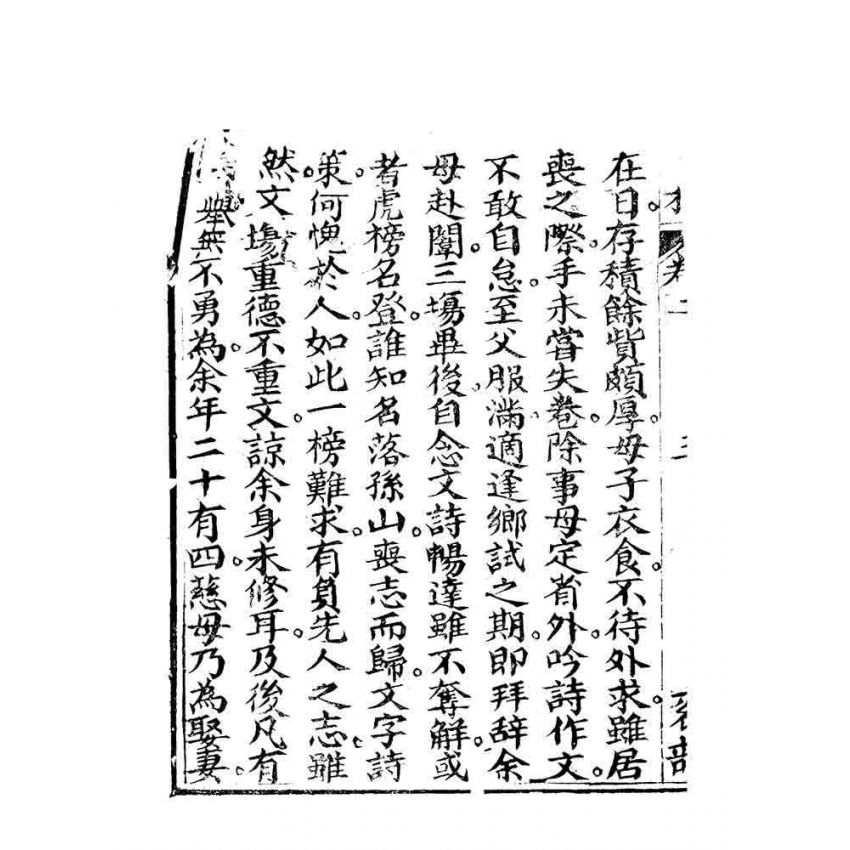 卷
在日存積餘貲頗厚母子衣食不待外求雖居
喪之際手未嘗失卷除事母定省外吟詩作文
不敢自怠至父服滿適逢鄉試之期即拜辞余
母赴闈三塲畢後自念文詩暢達雖不奪解或
者虎榜名登誰知名落孫山喪志而歸文字詩
策何愧於人如此一榜難求有負先人之志雖
然文塲重德不重文諒余身未修耳及後凡有
舉無不勇為余年二十有四慈母乃為娶妻